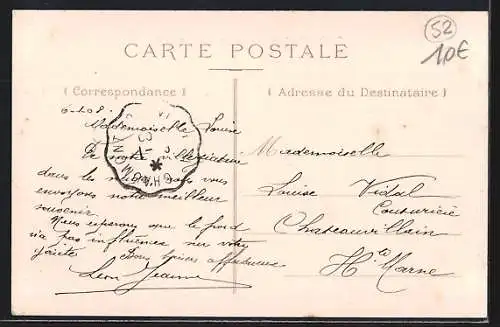 52
10€
CARTE POSTALE
( Correspondance )
( Adresse du Destinataire )
6-1-08.
Mademoiselle Louise
De notre villégiature
dans les nous vous
envoyons notre meilleur
souvenir
Nous esperons que le froid
n'a pas influencé sur votre
gaité. Bons baisers affectueux
Léon Jeanne
Mademoiselle
Louise Vidal
Couturière
Chateauvillain
Hte Marne